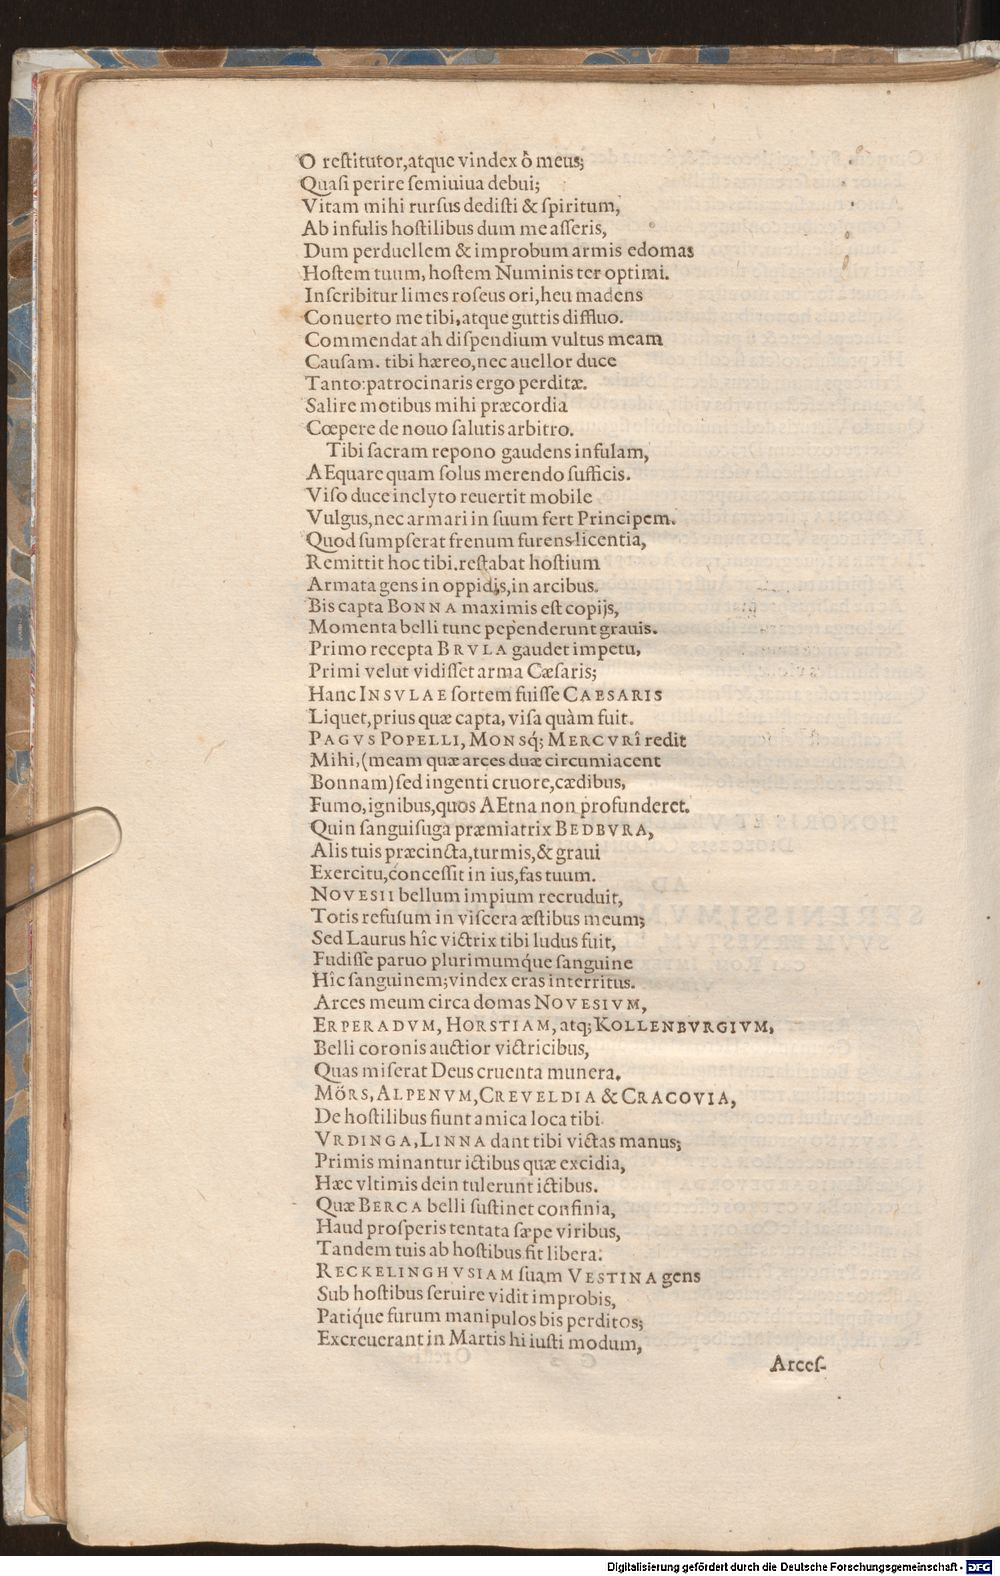 O restitutor, atque vindex ô meus;
Quasi perire semiuiua debui;
Vitam mihi rursus dedisti & spiritum,
Ab infulis hostilibus dum me asseris,
Dum perduellem & improbum armis edomas
Hostem tuum, hostem Numinis ter optimi.
Inscribitur limes roseus ori, heu madens
Conuerto me tibi, atque guttis diffluo.
Commendat ah dispendium vultus meam
Causam. tibi hæreo, nec auellor duce
Tanto: patrocinaris ergo perditæ.
Salire motibus mihi præcordia
Cœpere de nouo salutis arbitro.
Tibi sacram repono gaudens infulam,
AEquare quam solus merendo sufficis.
Viso duce inclyto reuertit mobile
Vulgus, nec armari in suum fert Principem.
Quod sumpserat frenum furens licentia,
Remittit hoc tibi. restabat hostium
Armata gens in oppidis, in arcibus.
Bis capta BONNA maximis est copijs,
Momenta belli tunc pependerunt grauis.
Primo recepta BRVLA gaudet impetu,
Primi velut vidisset arma Cæsaris;
Hanc INSVLAE sortem fuisse CAESARIS
Liquet, prius quæ capta, visa quàm fuit.
PAGVS POPELLI, MONSq́; MERCVRî redit
Mihi, (meam quæ arces duæ circumiacent
Bonnam) sed ingenti cruore, cædibus,
Fumo, ignibus, quos AEtna non profunderet.
Quin sanguisuga præmiatrix BEDBVRA,
Alis tuis præcincta, turmis, & graui
Exercitu, concessit in ius, fas tuum.
NOVESII bellum impium recruduit,
Totis refusum in viscera æstibus meum;
Sed Laurus hîc victrix tibi ludus fuit,
Fudisse paruo plurimumq́ue sanguine
Hîc sanguinem; vindex eras interritus.
Arces meum circa domas NOVESIVM,
ERPERADVM, HORSTIAM, atq; KOLLENBVRGIVM,
Belli coronis auctior victricibus,
Quas miserat Deus cruenta munera.
MÖRS, ALPENVM, CREVELDIA & CRACOVIA,
De hostilibus fiunt amica loca tibi.
VRDINGA, LINNA dant tibi victas manus;
Primis minantur ictibus quæ excidia,
Hæc vltimis dein tulerunt ictibus.
Quæ BERCA belli sustinet confinia,
Haud prosperis tentata sæpe viribus,
Tandem tuis ab hostibus fit libera:
RECKELINGHVSIAM suam VESTINA gens
Sub hostibus seruire vidit improbis,
Patiq́ue furum manipulos bis perditos;
Excreuerant in Martis hi iusti modum,
Arces-
Digitalisierung gefördert durch die Deutsche Forschungsgemeinschaft - DFG